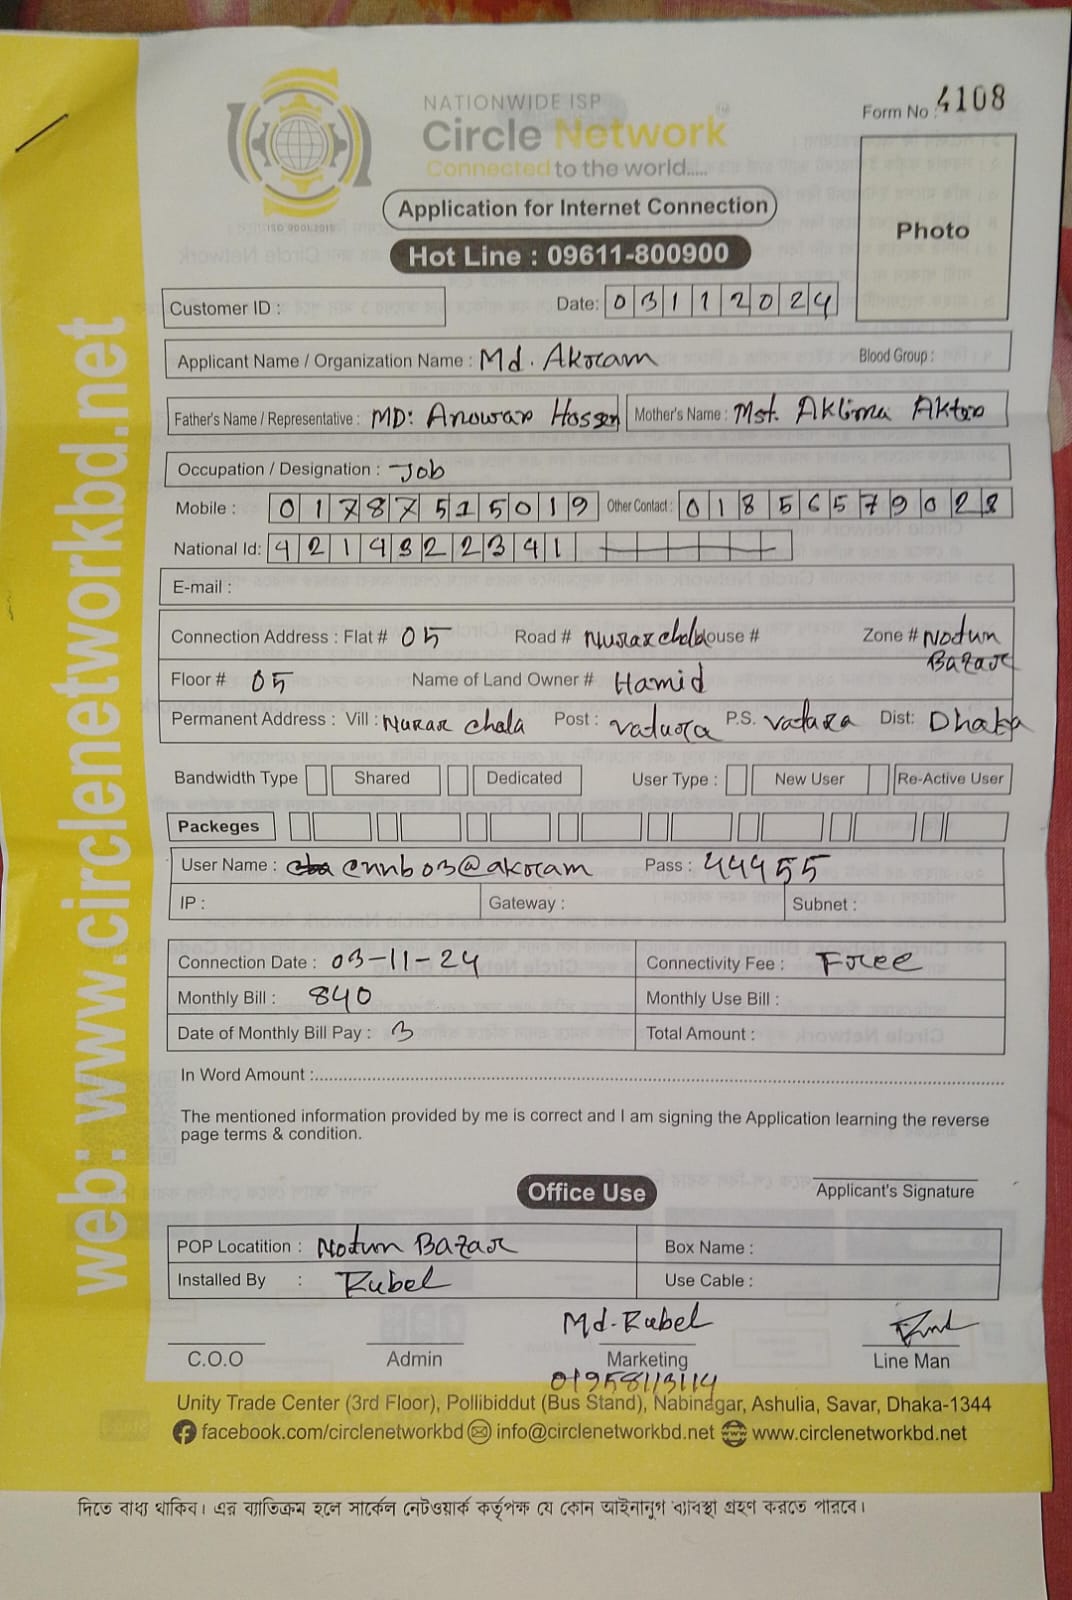 NATIONWIDE ISP
Circle Network
Connected to the world.....
ISO 9001:2015
Form No : 4108
Application for Internet Connection
Hot Line : 09611-800900
Photo
Customer ID :
Date: 03112024
Applicant Name / Organization Name : Md. Akram
Blood Group :
Father's Name / Representative : MD: Anowar Hossen
Mother's Name : Mst. Aklima Akter
Occupation / Designation : Job
Mobile : 01787515019 Other Contact : 01856579028
National Id: 4214322341
E-mail :
Connection Address : Flat # 05 Road # Nurar chala House # Zone # Notun Bazar
Floor # 05 Name of Land Owner # Hamid
Permanent Address : Vill : Nurar chala Post : Vatura P.S. Vatara Dist: Dhaka
Bandwidth Type Shared Dedicated User Type : New User Re-Active User
Packeges
User Name : cnnb03@akram Pass : 44455
IP : Gateway : Subnet :
Connection Date : 03-11-24 Connectivity Fee : Free
Monthly Bill : 840 Monthly Use Bill :
Date of Monthly Bill Pay : 3 Total Amount :
In Word Amount :
The mentioned information provided by me is correct and I am signing the Application learning the reverse
page terms & condition.
Applicant's Signature
Office Use
POP Locatition : Notun Bazar Box Name :
Installed By : Rubel Use Cable :
Md. Rubel
C.O.O Admin Marketing Line Man
01958113114
Unity Trade Center (3rd Floor), Pollibiddut (Bus Stand), Nabinagar, Ashulia, Savar, Dhaka-1344
facebook.com/circlenetworkbd info@circlenetworkbd.net www.circlenetworkbd.net
web: www.circlenetworkbd.net
দিতে বাধ্য থাকিব। এর ব্যাতিক্রম হলে সার্কেল নেটওয়ার্ক কর্তৃপক্ষ যে কোন আইনানুগ ব্যাবস্থা গ্রহণ করতে পারবে।